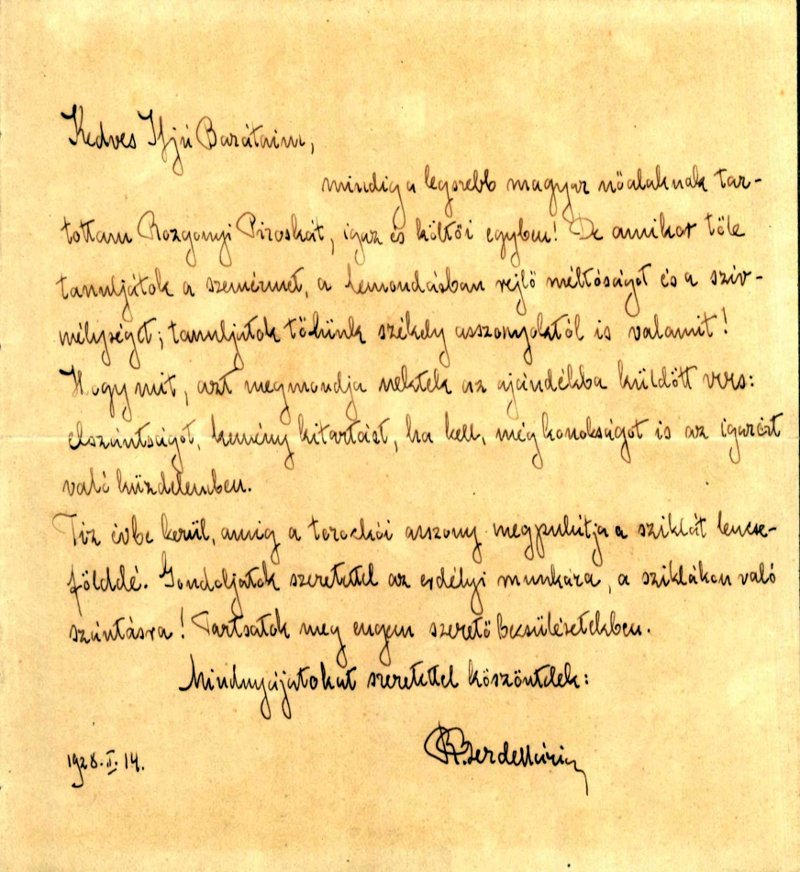 Kedves Ifjú Barátaim,
mindig a legszebb magyar nőalaknak tar-
tottam Rozgonyi Piroskát, igaz és költői egyben! De amikor tőle
tanuljátok a szemérmet, a lemondásban rejlő méltóságot és a szív-
mélységet; tanuljatok tőlünk székely asszonyoktól is valamit!
Hogy mit, azt megmondja nektek az ajándékba küldött vers:
elszántságot, kemény kitartást, ha kell, még konokságot is az igazért
való küzdelemben.
Tíz évbe kerül, amíg a torockói asszony megpuhítja a sziklát lencse-
földdé. Gondoljatok szeretettel az erdélyi munkára, a sziklákon való
szántásra! Tartsatok meg engem szerető becsülésetekben.
Mindnyájatokat szeretettel köszöntelek:
Berde Mária
1928. II. 14.